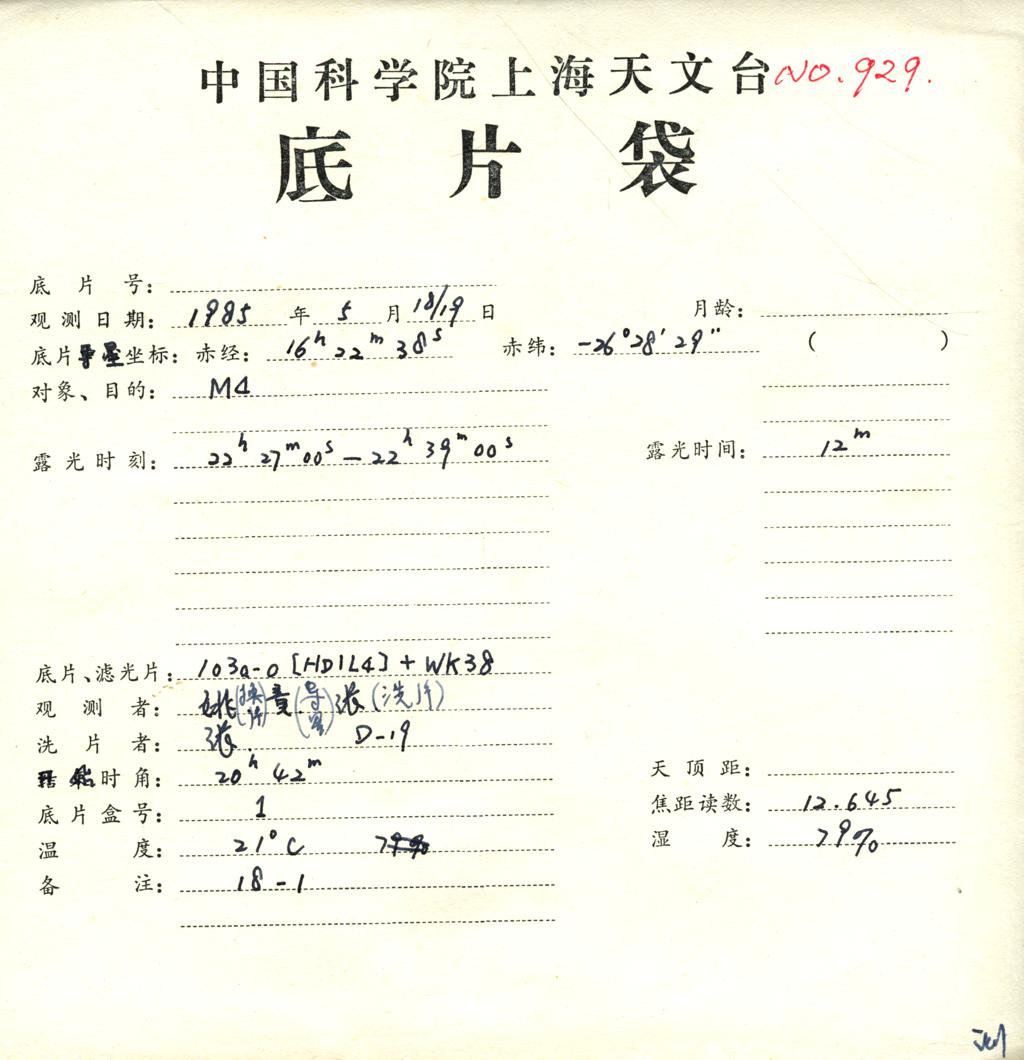 中国科学院上海天文台 NO.929.
底片袋
底片号：
观测日期：1985年5月18/19日 月龄：
底片导星坐标：赤经：16h22m38s 赤纬：-26°28′29″ ( )
对象、目的：M4
露光时刻：22h27m00s—22h39m00s 露光时间：12m
底片、滤光片：103a-O [HD1L4] + WK38
观测者：姚(换片) 黄(导星) 张(洗片)
洗片者：张. D-19
时角：20h42m 天顶距：
底片盒号：1 焦距读数：12.645
温度：21°C 湿度：79%
备注：18-1